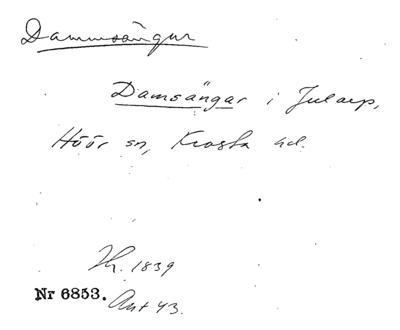 Dammsängar
Damsängar i Jularp,
Höör sn, Frosta hd.
Hr. 1839
Nr 6853. Ant 43.